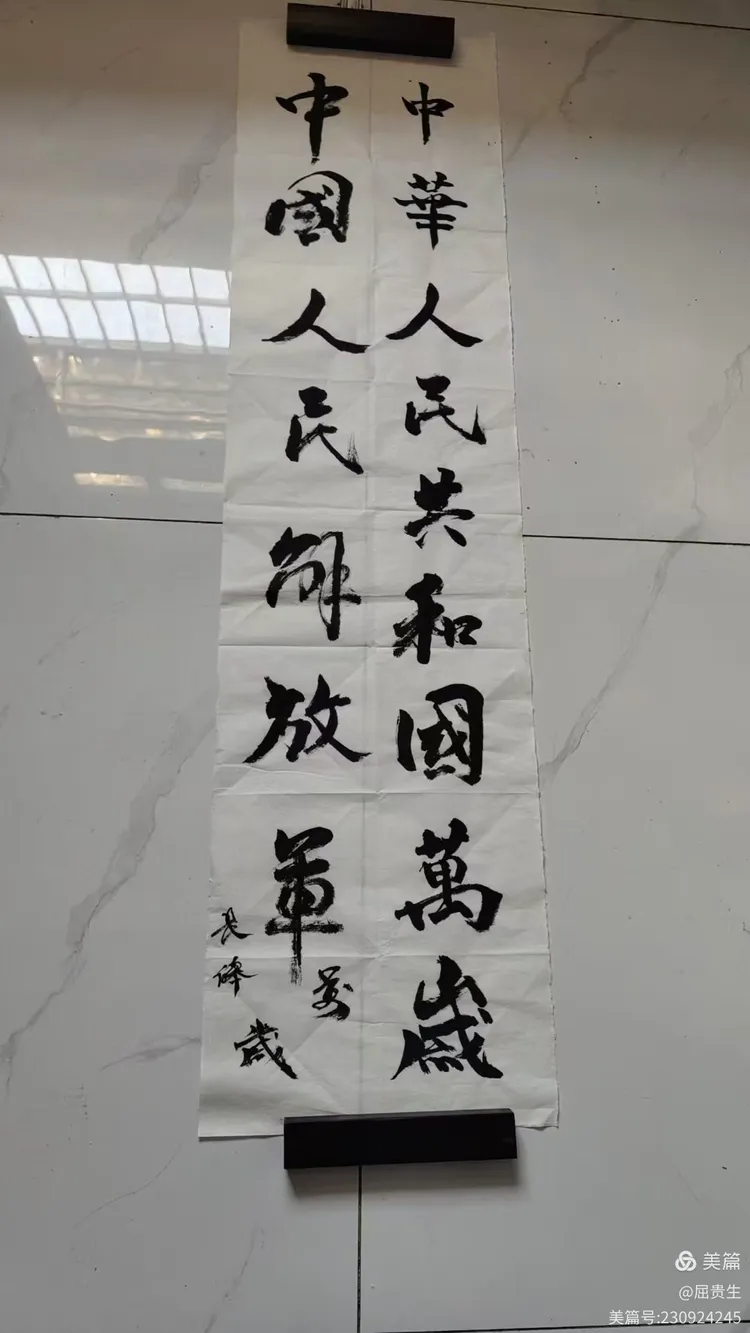 中華人民共和國萬歲
中國人民解放軍萬歲
長
美篇
@屈贵生
美篇号:230924245